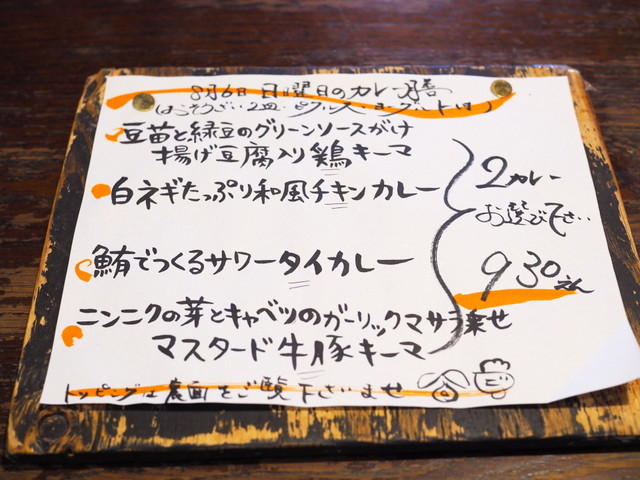 8月6日 日曜日のカレー膳
(おそうざい2皿・ピクルス・ヨーグルト付)
豆苗と緑豆のグリーンソースがけ
揚げ豆腐入り鶏キーマ
白ネギたっぷり和風チキンカレー
鮪でつくるサワータイカレー
ニンニクの芽とキャベツのガーリックマサラ乗せ
マスタード牛豚キーマ
2カレー
お選び下さい
930えん
トッピングは裏面をご覧下さいませ